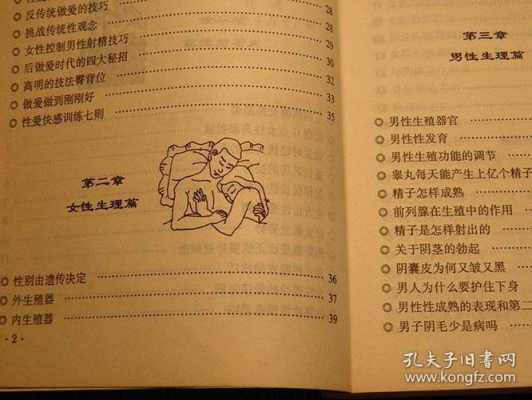 ◎ 反传统做爱的技巧 28
◎ 挑战传统性观念 28
◎ 女性控制男性射精技巧 30
◎ 后做爱时代的四大秘招 32
◎ 高明的技法臀背位 33
◎ 做爱做到刚刚好 33
◎ 性爱快感训练七则 35
第二章
女性生理篇
◎ 性别由遗传决定 36
◎ 外生殖器 37
◎ 内生殖器 39
·2·
第三章
男性生理篇
◎ 男性生殖器官
◎ 男性性发育
◎ 男性生殖功能的调节
◎ 睾丸每天能产生上亿个精子
◎ 精子怎样成熟
◎ 前列腺在生殖中的作用
◎ 精子是怎样射出的
◎ 关于阴茎的勃起
◎ 阴囊皮为何又皱又黑
◎ 男人为什么要护住下身
◎ 男性性成熟的表现和第二
◎ 男子阴毛少是病吗
孔夫子旧书网
www.kongfz.com